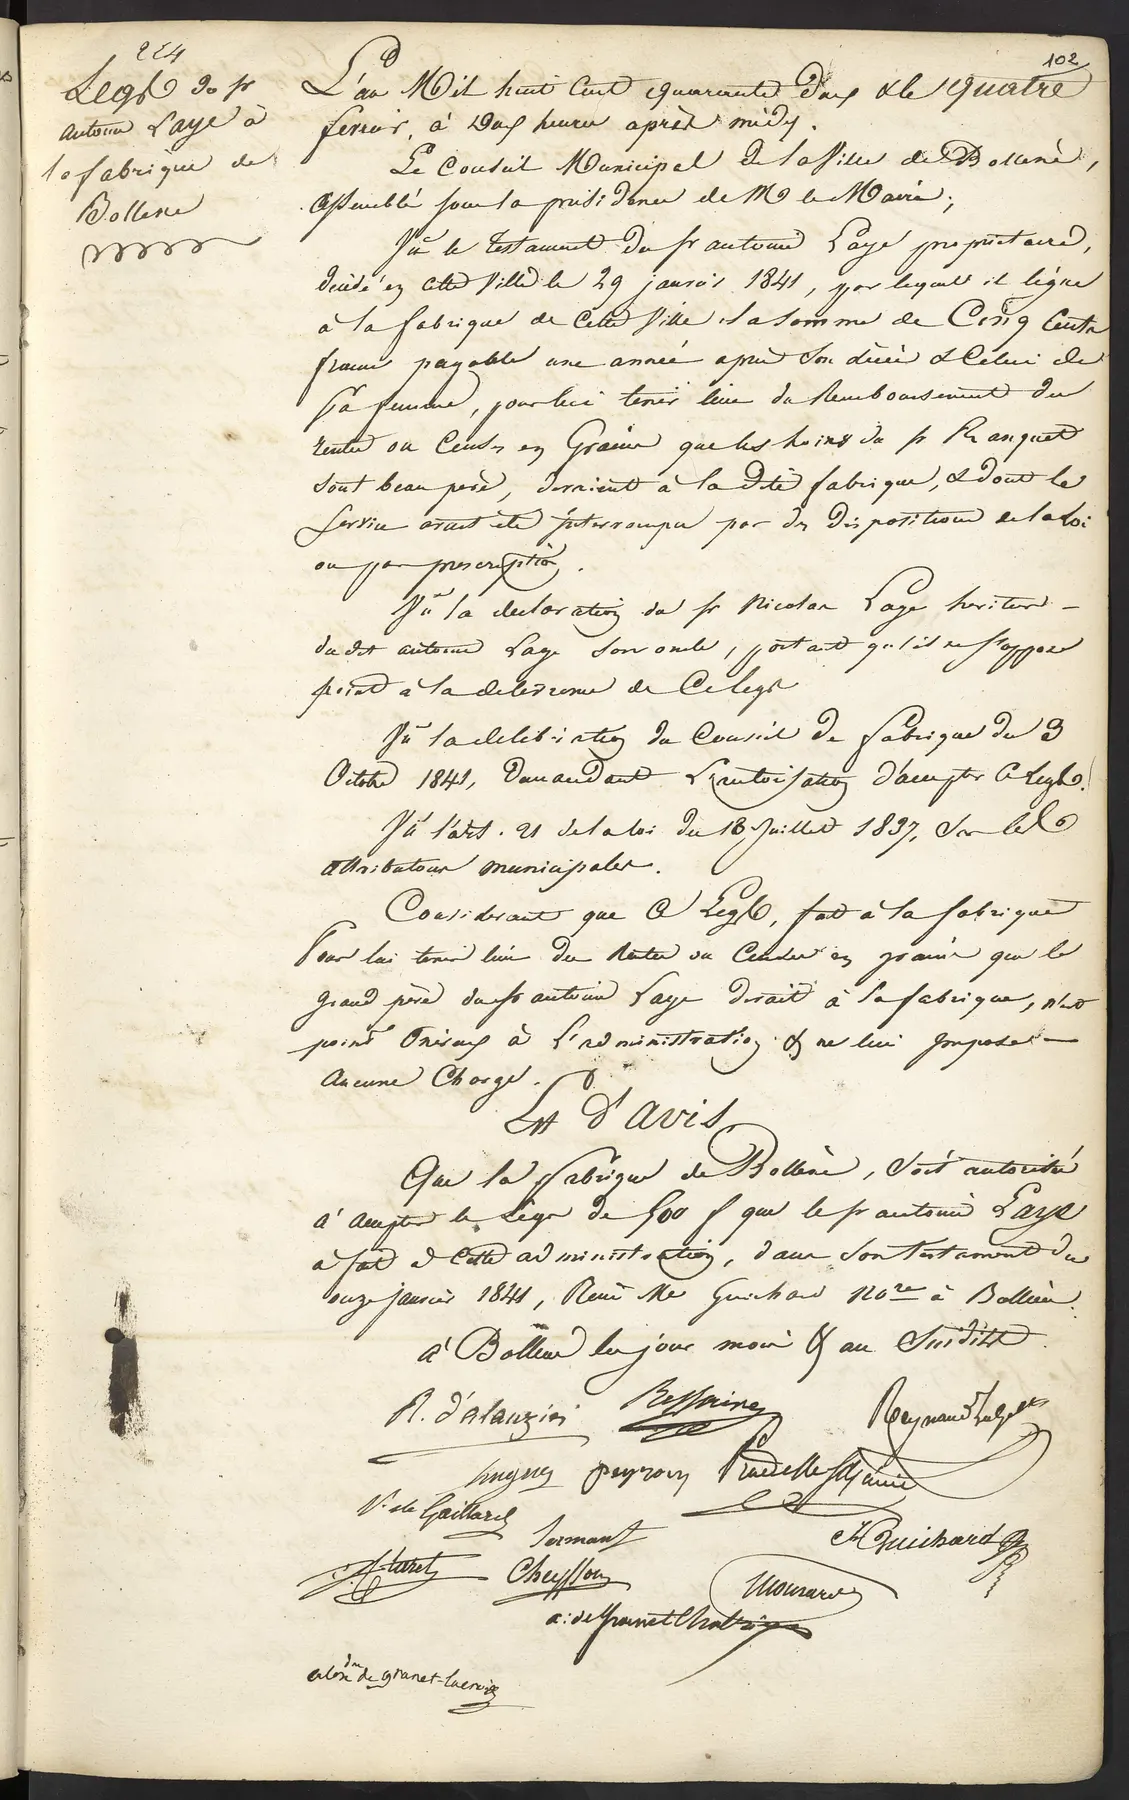 224
Legs du sr
antoine Laye à
la fabrique de
Bollene
102
L'an Mil huit Cent quarante deux & le quatre
fevrier, à Deux heures après midy.
Le Conseil Municipal de la Ville de Bollenè,
assemblé sous la présidence de Mr le Maire;
Vu le testament du sr antoine Laye propriétaire,
décédé en cette Ville le 29 janvier 1841, par lequel il lègue
à la fabrique de Cette Ville la somme de Cinq Cents
francs payable une année après son décès & Celui de
sa femme, pour lui tenir lieu du Remboursement des
rentes ou Censes en Grains que les hoirs du sr Ranquet
sont beau père, devaient à la dite fabrique, & dont le
Service avait été interrompu par des dispositions de la Loi
ou par prescription.
Vu la declaration du sr Nicolas Laye heritier
du dit antoine Laye son oncle, portant qu'il ne s'oppose
point à la delivrance de Ce legs
Vu la deliberation du Conseil de fabrique du 3
Octobre 1841, demandant L'autorisation d'accepter Ce Legs.
Vu l'art. 21 de la loi du 18 Juillet 1837, sur les
attributions municipales.
Considerant que Ce Legs, fait à la fabrique
Pour lui tenir lieu des Rentes ou Censes en grains que le
grand père du sr antoine Laye devait à la fabrique, n'est
point Onéreux à L'administration & ne lui impose
Aucune Charge.
Est d'avis
Que la fabrique de Bollène, soit autorisée
à accepter le Legs de 500 f que le sr antoine Laye
a fait à Cette administration, dans son testament du
onze janvier 1841, Reçu Me Guichard Nore à Bollène.
à Bollene les jour mois & an Susdits.
R. d'alauzier Reynaud
peyron Pradelle
V. de Gaillard
Guichard
Sermant
Cheysson Mourard
a: de Granet
alexdre de granet-lacroix